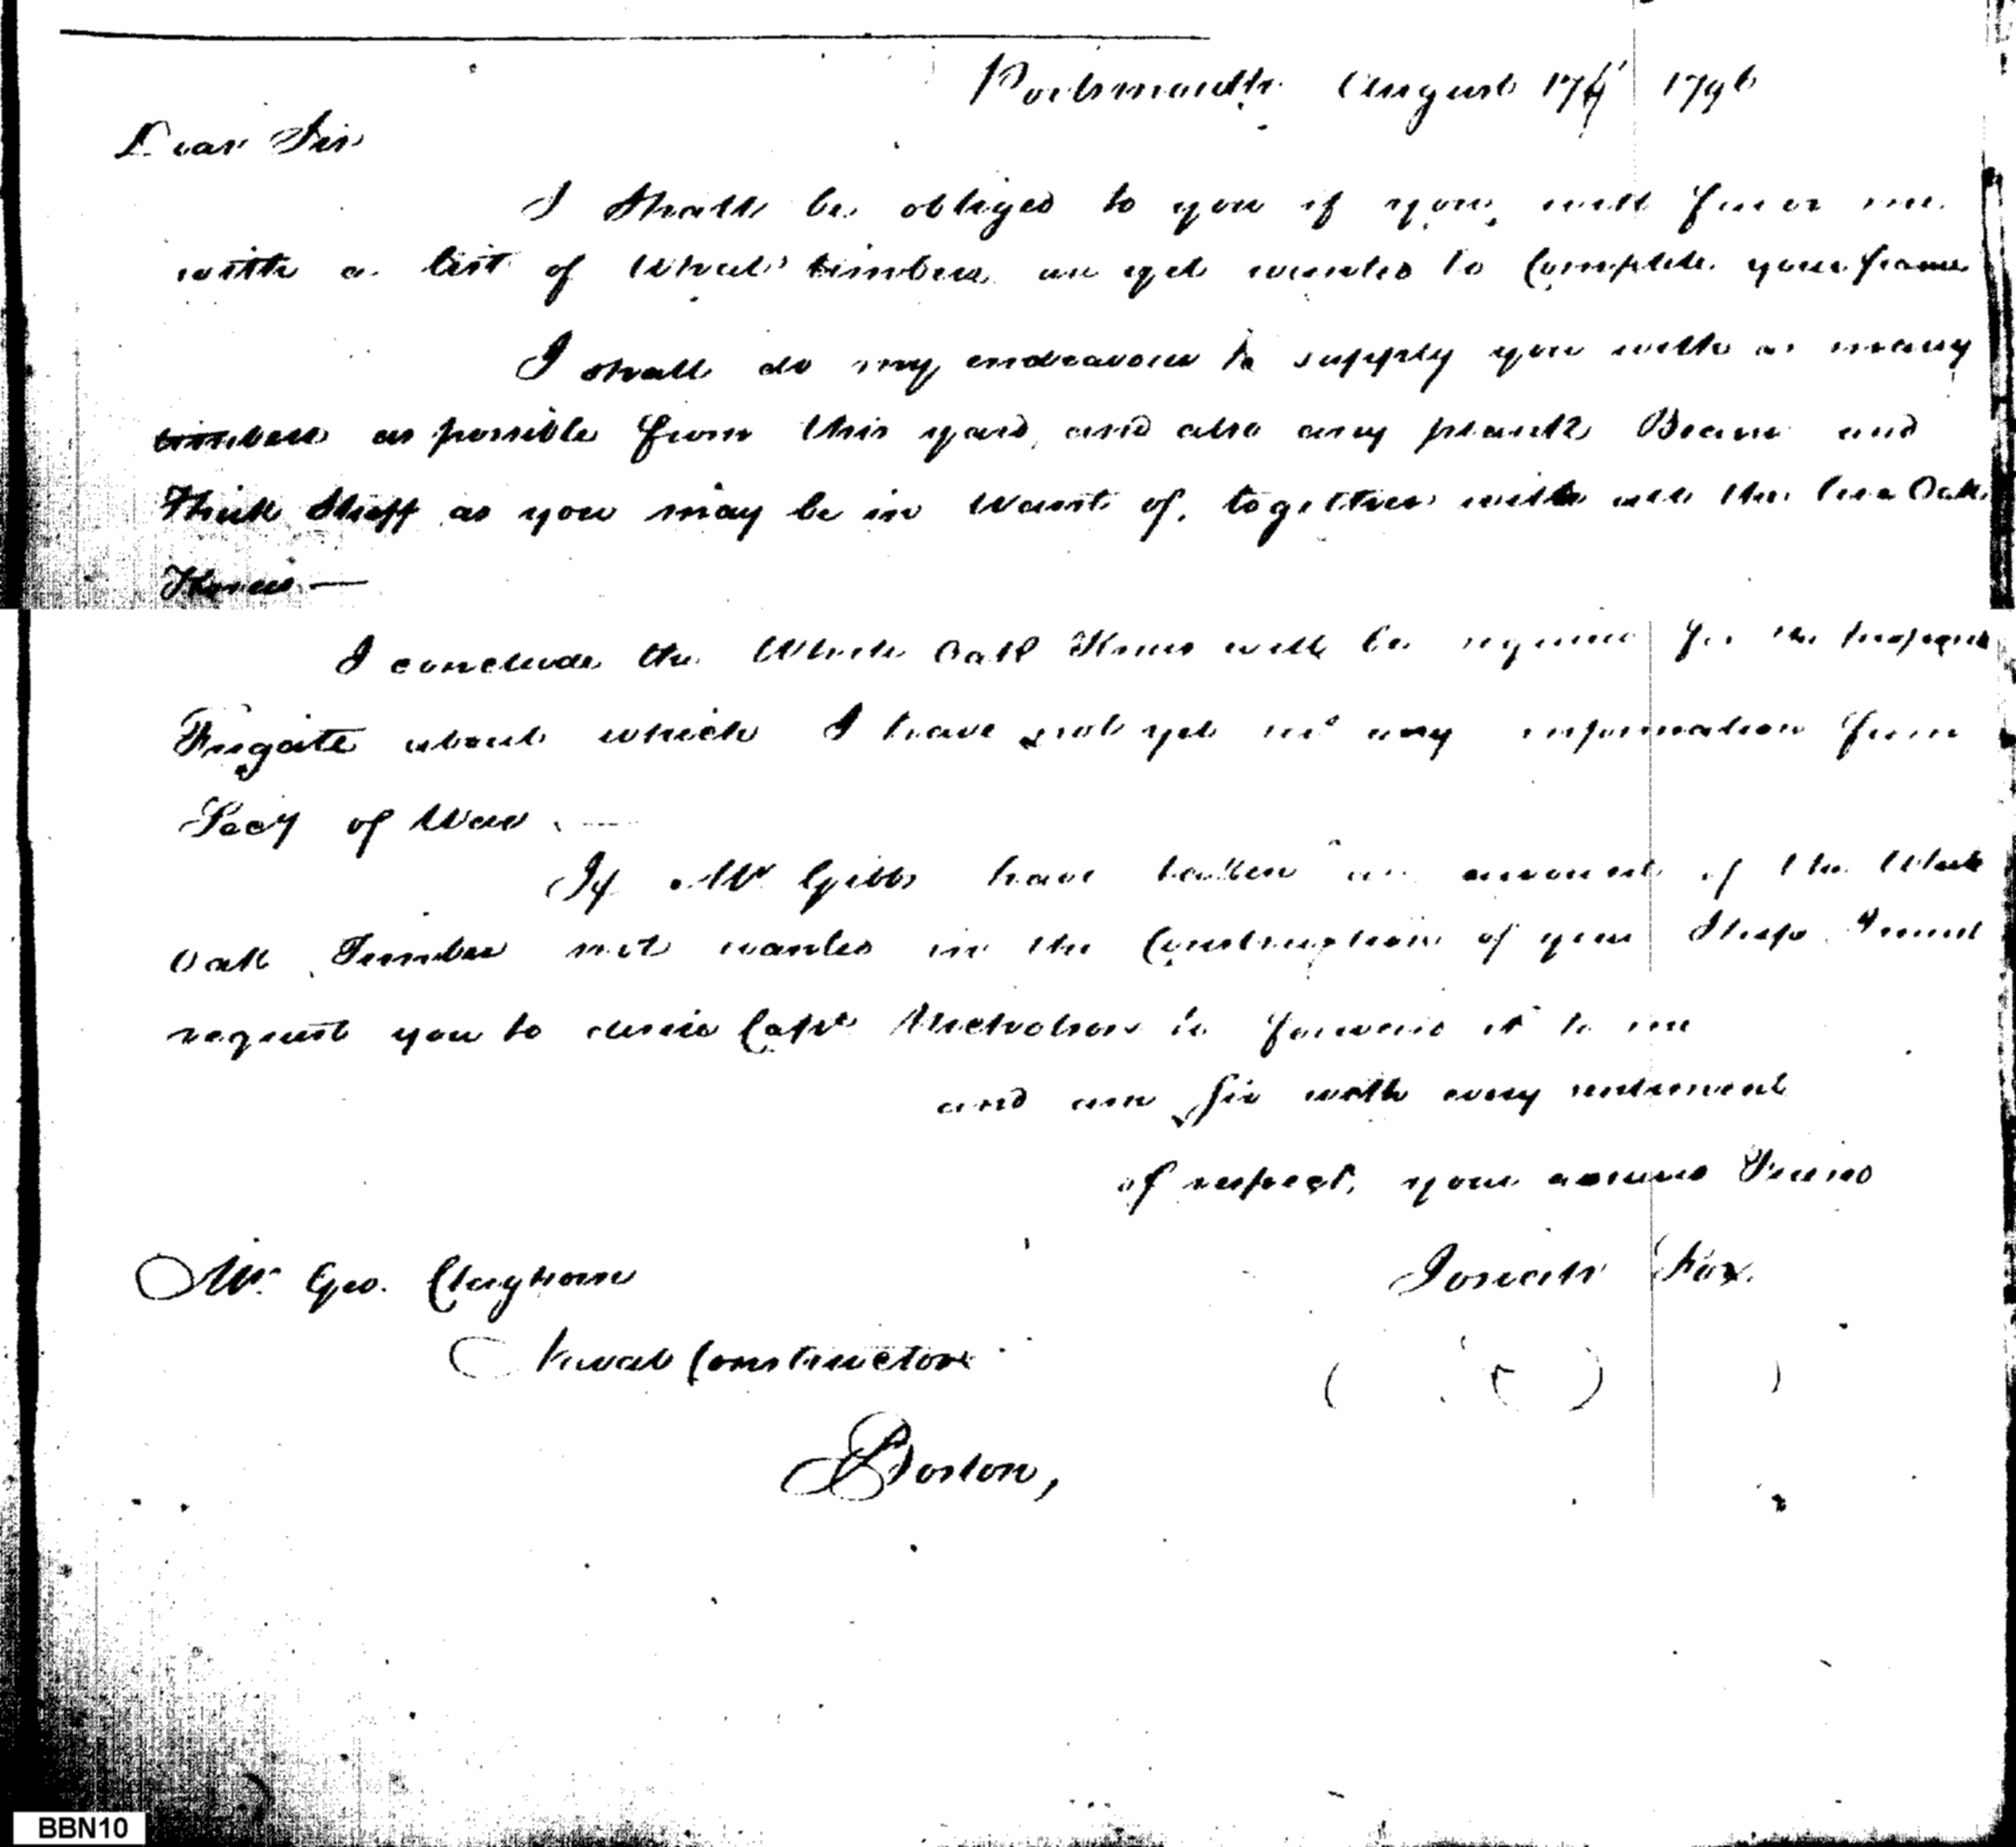 Portsmouth August 17th 1796
Dear Sir
I Shall be obliged to you if you will favor me
with a list of What timbers are yet wanted to Complete your frame
I shall do my endeavour to supply you with as many
timbers as possible from this yard, and also any plank Beams and
Thick Stuff as you may be in Want of, together with all the live Oak
Knees —
I conclude the White Oak Knees will be required for the
Frigate about which I have not yet recd any information from
Secy of War. —
If Mr Gibbs have taken an account of the White
Oak Timber not wanted in the Construction of your Ship I must
request you to desire Capt Nicholson to forward it to me
and am Sir with every sentiment
of respect, your assured Friend
Mr Geo. Claghorn Josiah Fox.
Naval Constructor
Boston,
BBN10